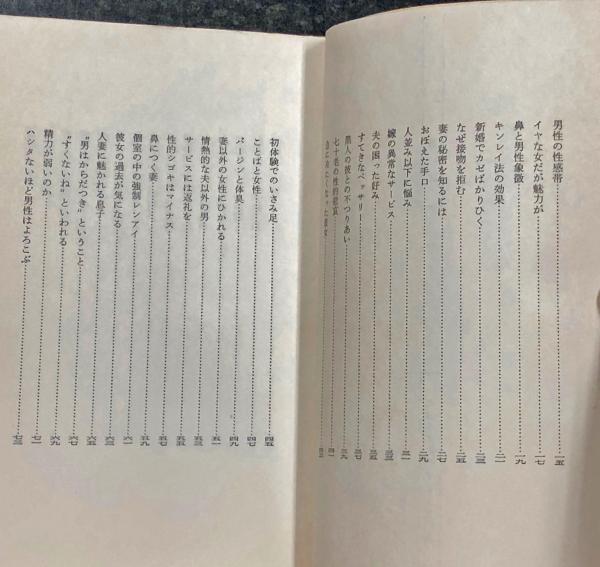 男性の性感帯……一五
イヤな女だが魅力が……一七
鼻と男性象徴……一九
キンレイ法の効果……二一
新婚でカゼばかりひく……二三
なぜ接吻を拒む……二五
妻の秘密を知るには……二七
おぼえた手口……二九
人並み以下に悩み……三一
嫁の異常なサービス……三三
夫の困った好み……三五
すてきなペッサリー……三七
黒人の彼との不つりあい……三九
七十名の性的慰宴……四一
四三
初体験でのいさみ足……四五
ことばと女性……四七
バージンと体臭……四九
妻以外の女性にひかれる……五一
情熱的な夫以外の男……五三
サービスには返礼を……五五
性的シゴキはマイナス……五七
鼻につく妻……五九
個室の中の強制レンアイ……六一
彼女の過去が気になる……六三
人妻に魅かれる息子……六五
“男はからだつき”ということ……六七
“すくないね”といわれる……六九
精力が弱いのか……七一
ハシタないほど男性はよろこぶ……七三